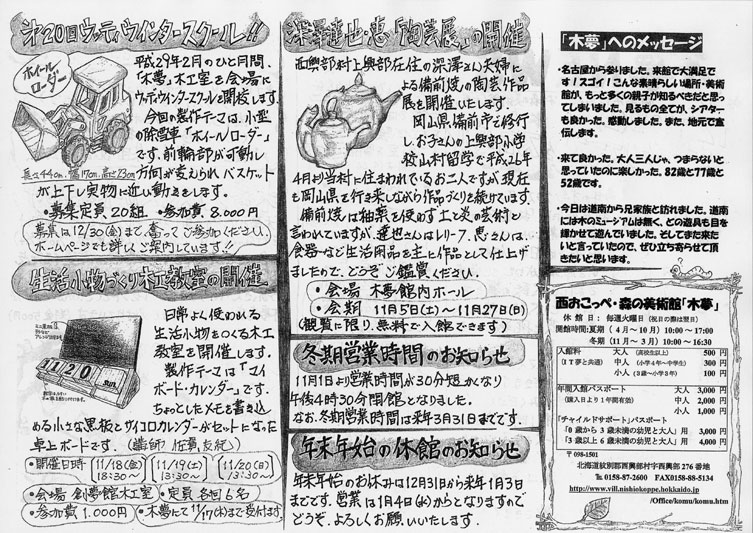 第20回ウッディウインタースクール!!
ホイール
ローダー
平成29年2月のひと月間、
「木夢」木工室を会場に
ウッディウインタースクールを開校します。
今回の製作テーマは、小型
の除雪車「ホイールローダー」
です。前輪部が可動し
方向が変えられ バスケット
が上下し実物に近い動きをします。
長さ44cm 幅17cm 高さ23cm
・募集定員 20組 ・参加費 8,000円
募集は12/30(金)まで、奮ってご参加ください。
ホームページでも詳しくご案内しています!!
生活小物づくり木工教室の開催
日常よく使われる
生活小物をつくる木工
教室を開催します。
製作テーマは「マイ
ボード・カレンダー」です。
ちょっとしたメモを書き込
める小さな黒板とサイコロカレンダーがセットになった
卓上ボードです。
1120 SUN
・開催日時 11/18(金) 18:30~ 11/19(土) 13:30~ 11/20(日) 13:30~
・会場 創夢館木工室 ・定員 各回6名
・参加費 1,000円 ・木夢にて11/17(木)まで受付ます。
深澤達也・恵「陶芸展」の開催
西興部村上興部在住の深澤さん夫婦に
よる備前焼の陶芸作品
展を開催いたします。
岡山県備前市で修行
し、お子さんの上興部小学
校山村留学で平成26年
4月より当村に住まわれているお二人ですが、現在
も岡山県を行き来しながら作品づくりを続けています。
備前焼は釉薬を使わず土と炎の芸術と
言われていますが、達也さんはレリーフ、恵さんは、
食器など生活用品を主に作品として仕上げ
ましたので、どうぞご鑑賞ください。
・会場 木夢館内ホール
・会期 11月5日(土)~11月27日(日)
(観覧に限り、無料で入館できます)
冬期営業時間のお知らせ
11月1日より営業時間が30分短かくなり
午後4時30分閉館となりました。
なお、冬期営業時間は来年3月31日までです。
年末年始の休館のお知らせ
年末年始のお休みは12月31日から来年1月3日
までです。営業は1月4日(水)からとなりますので
どうぞ、よろしくお願いいたします。
「木夢」へのメッセージ
・名古屋から参りました。来館で大満足で
す!スゴイ!こんな素晴らしい場所・美術
館が、もっと多くの親子が知るべきだと思っ
てしまいました。見るもの全てが、シアター
も良かった。感動しました。また、地元で宣
伝します。
・来て良かった。大人三人じゃ、つまらないと
思っていたのに楽しかった。82歳と77歳と
52歳です。
・今日は道南から兄家族と訪れました。道南
には木のミュージアムは無く、どの遊具も目を
輝かせて遊んでいました。そしてまた来た
いと言っていたので、ぜひ立ち寄らせて頂
きたいと思います。
西おこっぺ・森の美術館「木夢」
休館日:毎週火曜日(祝日の際は翌日)
開館時間:夏期(4月~10月)10:00~17:00
冬期(11月~3月)10:00~16:30
入館料 大人(高校生以上) 500円
(IT夢と共通) 中人(小学4年~中学生) 300円
小人(3歳~小学3年) 100円
年間入館パスポート 大人 3,000円
(購入日より1年間有効) 中人 2,000円
小人 1,000円
「チャイルドサポート」パスポート
「0歳から3歳未満の幼児と大人」用 3,000円
「3歳以上6歳未満の幼児と大人」用 4,000円
〒098-1501
北海道紋別郡西興部村字西興部276番地
℡ 0158-87-2600 FAX0158-88-5134
http://www.vill.nishiokoppe.hokkaido.jp
/Office/komu/komu.htm